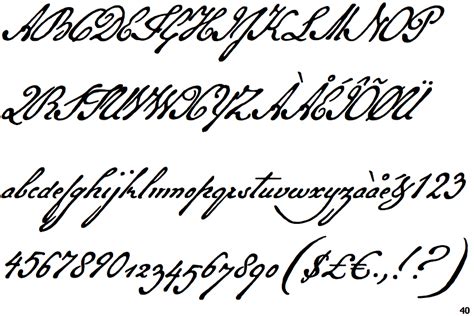 ABCDEFGHIJKLMNOP
QRSTUVWXYZÀÅÉÎÕØÜ
abcdefghijklmnopqrstuvwxyzàåé&123
45678901234567890($£€.,!?)
40